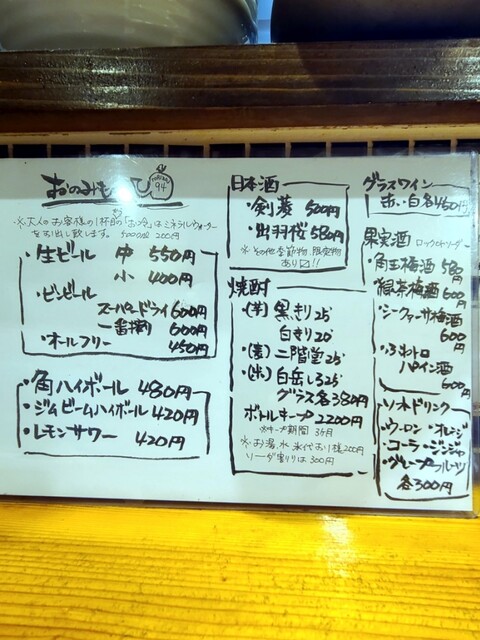 おのみもの
94
※大人のお客様の1杯目の「お冷」はミネラルウォーター
をお出し致します。 500ml 200円
・生ビール 中 550円
小 400円
・ビンビール
スーパードライ 600円
一番搾り 600円
・オールフリー 450円
・角ハイボール 480円
・ジムビームハイボール 420円
・レモンサワー 420円
日本酒
・剣菱 500円
・出羽桜 580円
※その他季節物、限定物
あり〼!!
焼酎
・(芋) 黒きり25°
白きり20°
・(麦) 二階堂25°
・(米) 白岳しろ25°
グラス各380円
ボトルキープ 2200円
※キープ期間 3ヶ月
※お湯、水、氷代お1人様200円
ソーダ割りは300円
グラスワイン
赤・白各460円
果実酒 ロックorソーダー
・角玉梅酒 580円
・緑茶梅酒 600円
・シークァーサー梅酒
600円
・ふわトロ
パイン酒
600円
ソフトドリンク
・ウーロン ・オレンジ
・コーラ ・ジンジャ
・グレープフルーツ
各300円